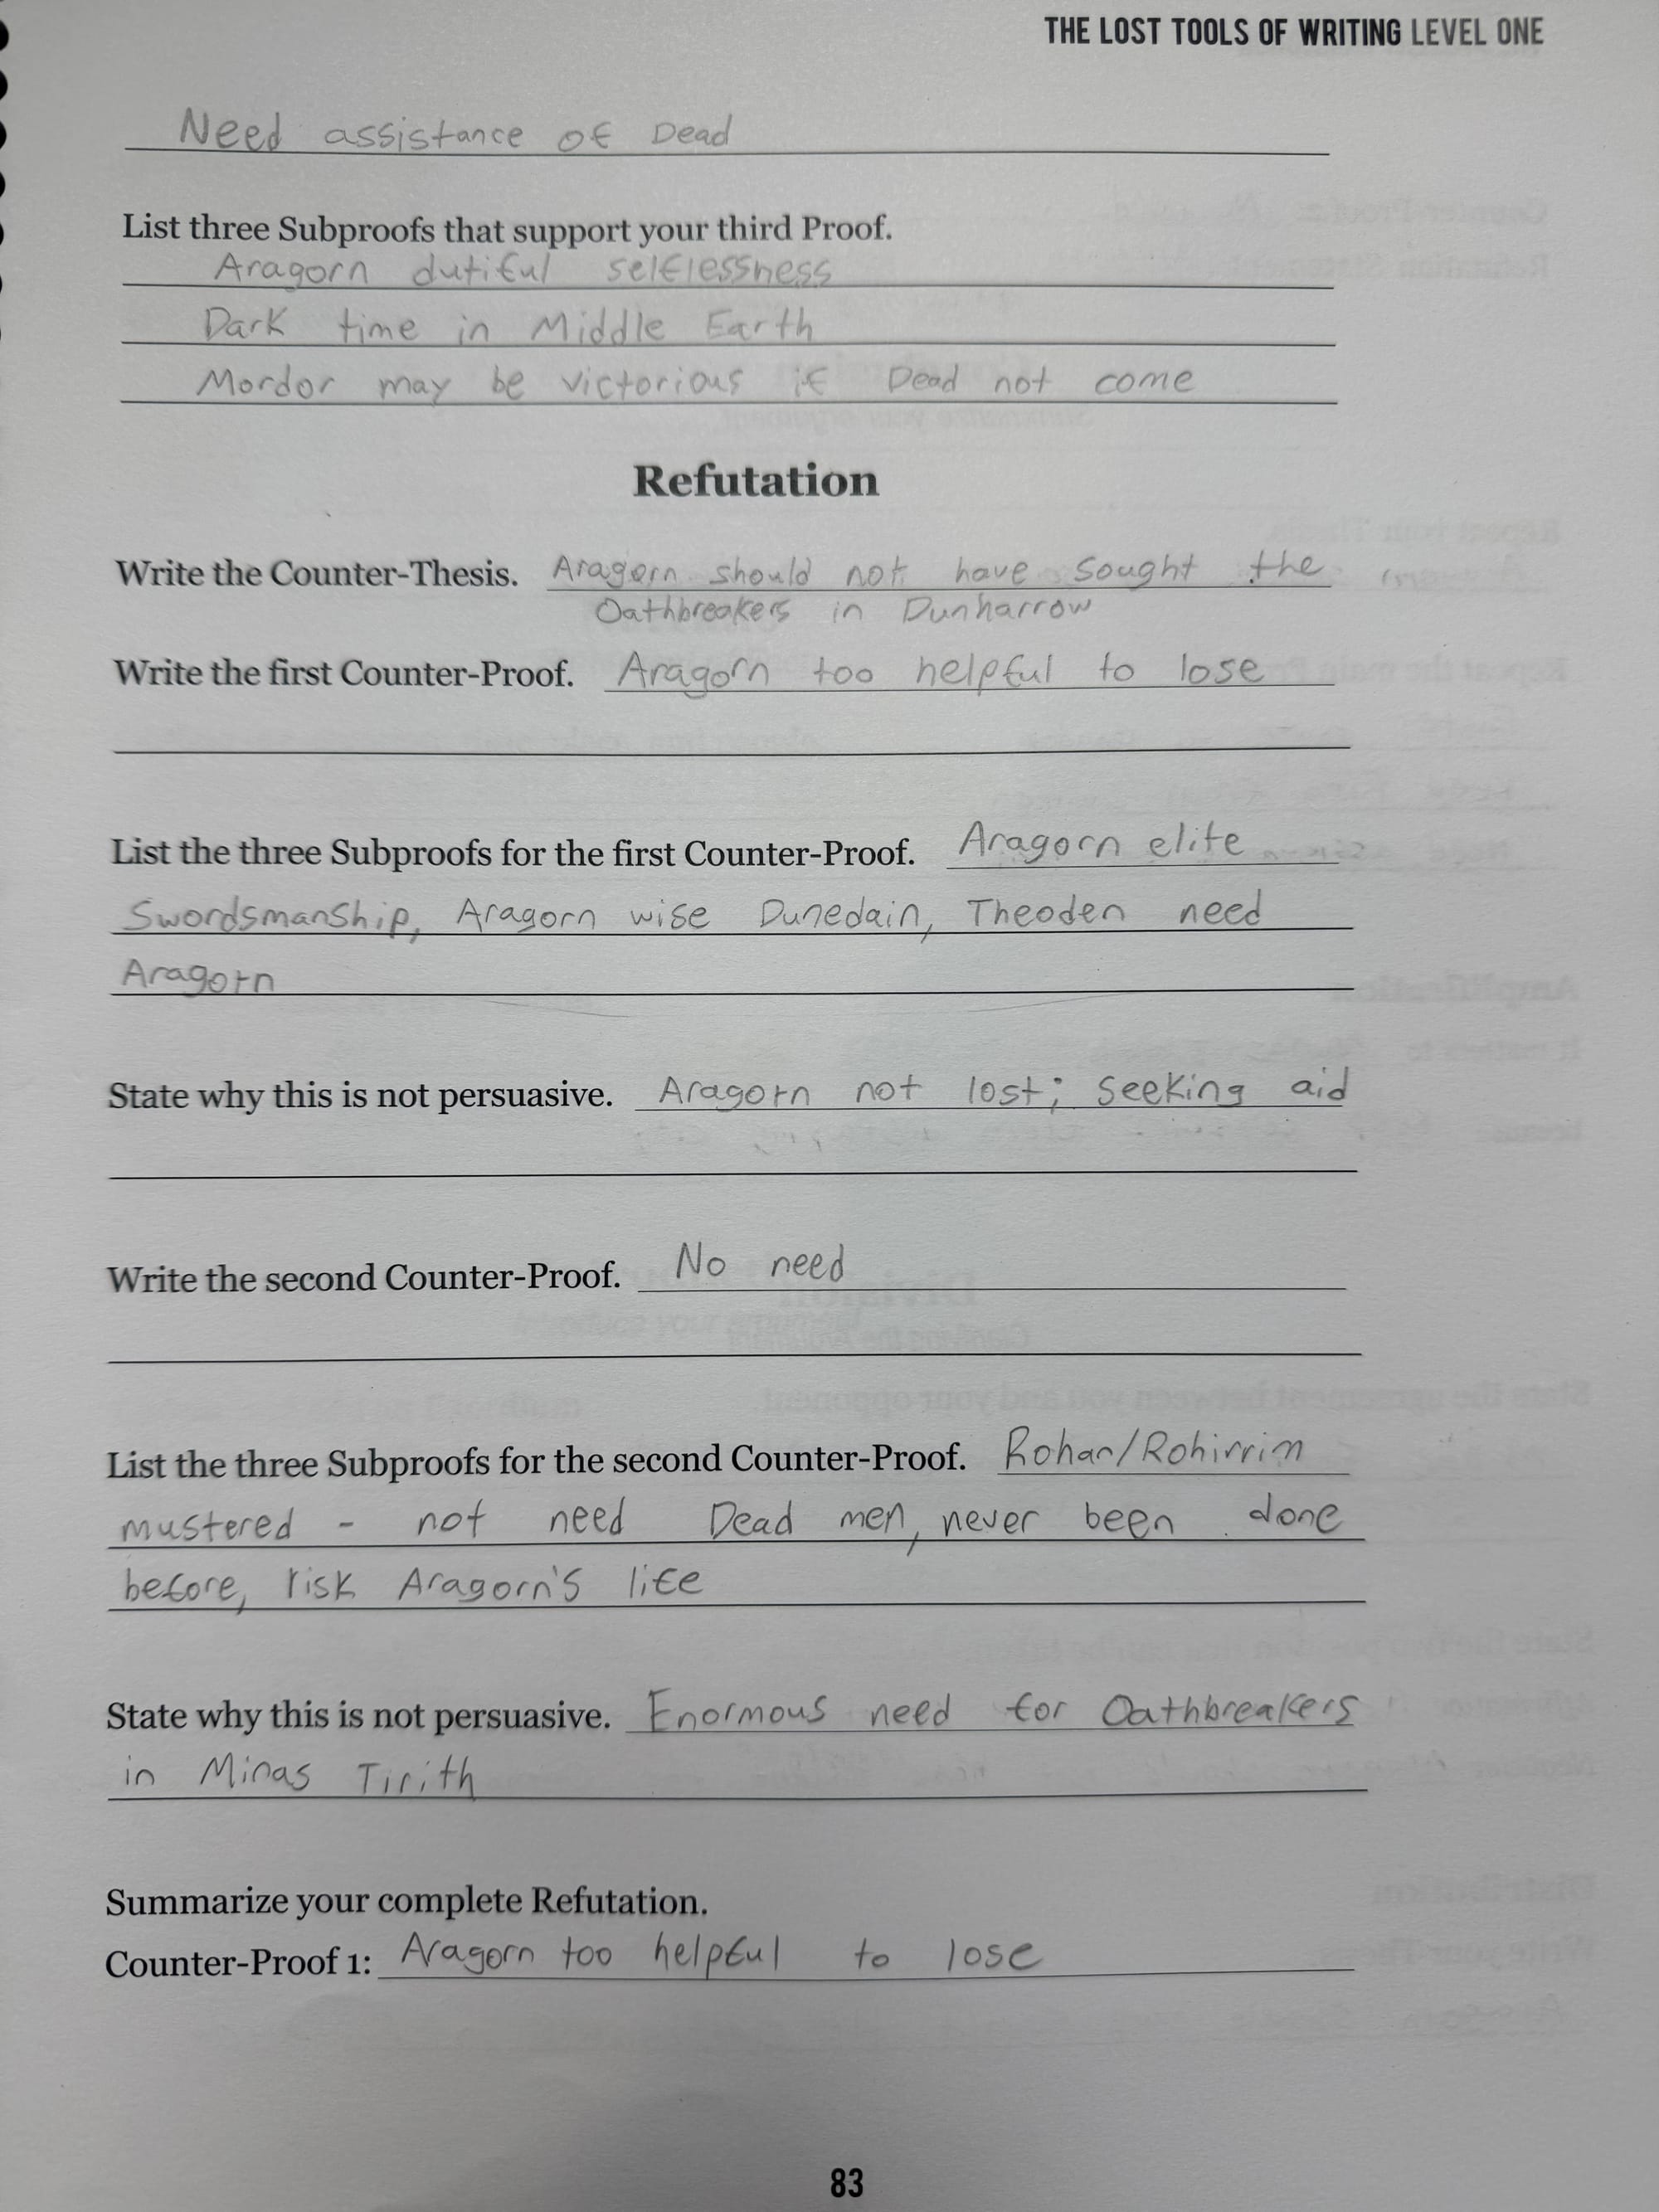 THE LOST TOOLS OF WRITING LEVEL ONE
Need assistance of Dead
List three Subproofs that support your third Proof.
Aragorn dutiful selflessness
Dark time in Middle Earth
Mordor may be victorious if Dead not come
Refutation
Write the Counter-Thesis. Aragorn should not have sought the
Oathbreakers in Dunharrow
Write the first Counter-Proof. Aragorn too helpful to lose
List the three Subproofs for the first Counter-Proof. Aragorn elite
Swordsmanship, Aragorn wise Dunedain, Theoden need
Aragorn
State why this is not persuasive. Aragorn not lost; seeking aid
Write the second Counter-Proof. No need
List the three Subproofs for the second Counter-Proof. Rohan/Rohirrim
mustered - not need Dead men, never been done
before, risk Aragorn's life
State why this is not persuasive. Enormous need for Oathbreakers
in Minas Tirith
Summarize your complete Refutation.
Counter-Proof 1: Aragorn too helpful to lose
83